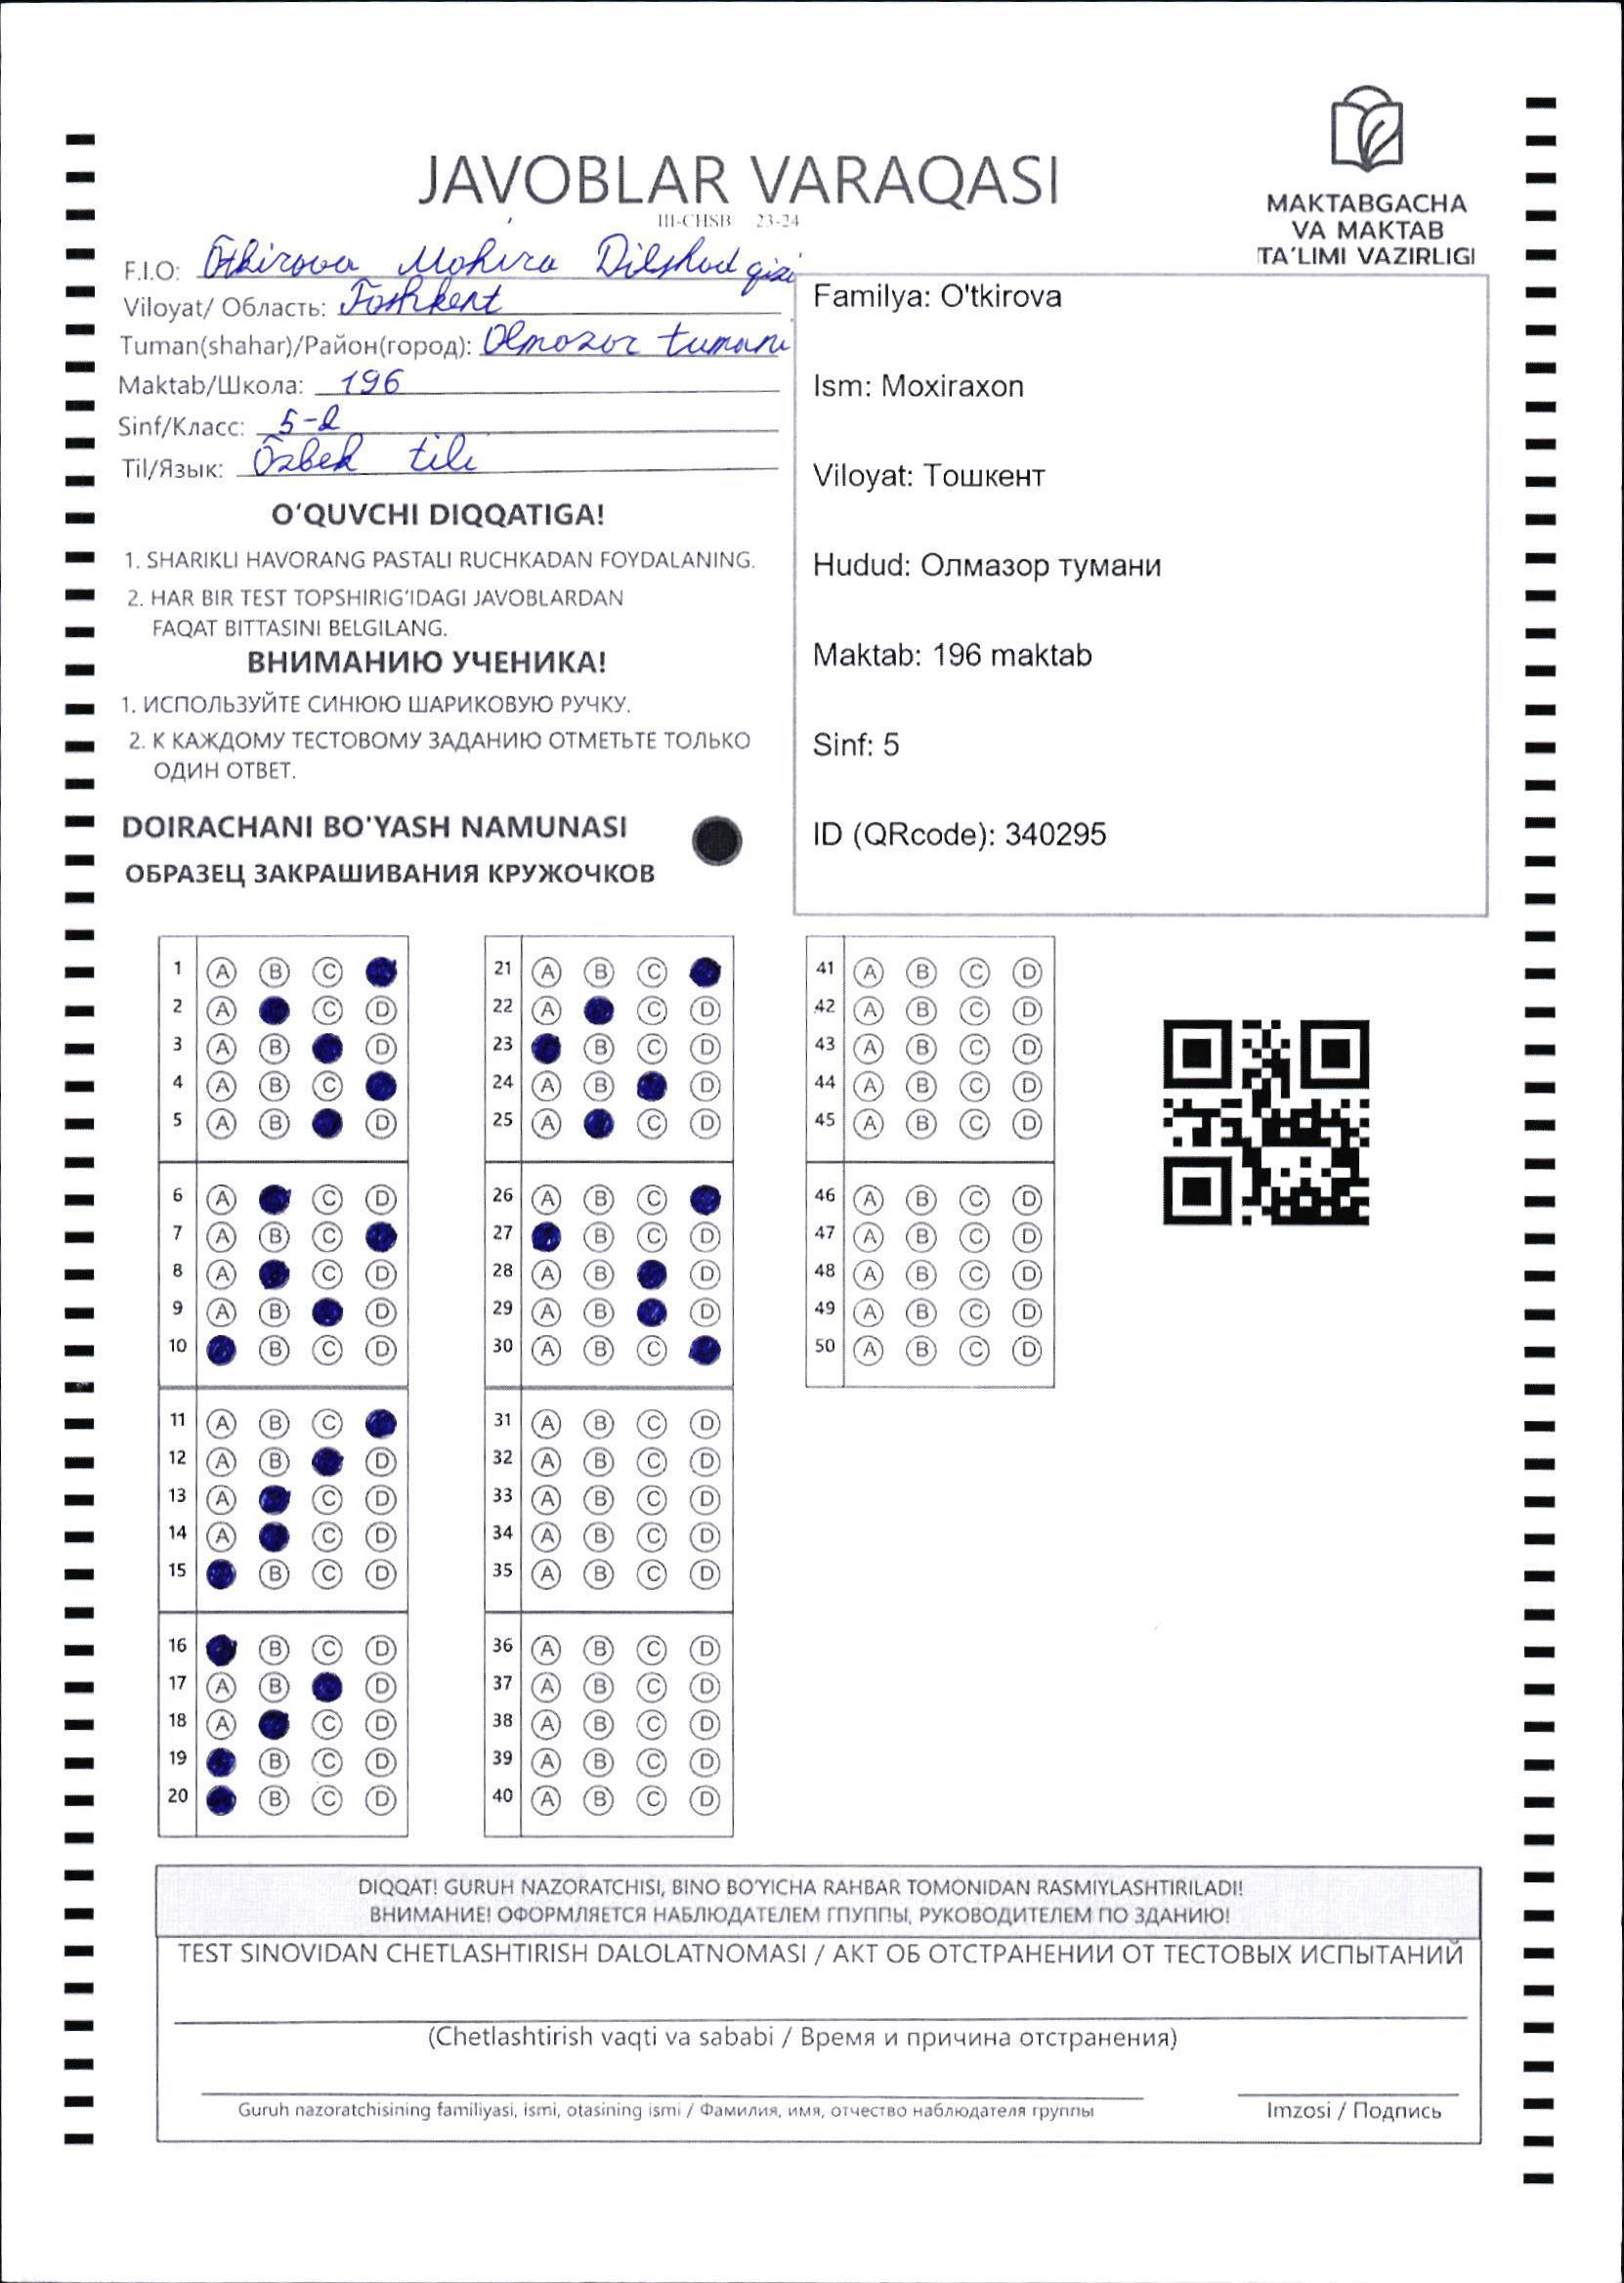 JAVOBLAR VARAQASI
III-CHSB 23-24
MAKTABGACHA
VA MAKTAB
TA'LIMI VAZIRLIGI
F.I.O: Ōtkirova Mohira Dilshod qizi
Viloyat/ Область: Toshkent
Tuman(shahar)/Район(город): Olmozor tumani
Maktab/Школа: 196
Sinf/Класс: 5-
Til/Язык: Ōzbek tili
O'QUVCHI DIQQATIGA!
1. SHARIKLI HAVORANG PASTALI RUCHKADAN FOYDALANING.
2. HAR BIR TEST TOPSHIRIG'IDAGI JAVOBLARDAN
FAQAT BITTASINI BELGILANG.
ВНИМАНИЮ УЧЕНИКА!
1. ИСПОЛЬЗУЙТЕ СИНЮЮ ШАРИКОВУЮ РУЧКУ.
2. К КАЖДОМУ ТЕСТОВОМУ ЗАДАНИЮ ОТМЕТЬТЕ ТОЛЬКО
ОДИН ОТВЕТ.
DOIRACHANI BO'YASH NAMUNASI
ОБРАЗЕЦ ЗАКРАШИВАНИЯ КРУЖОЧКОВ
Familya: O'tkirova
Ism: Moxiraxon
Viloyat: Тошкент
Hudud: Олмазор тумани
Maktab: 196 maktab
Sinf: 5
ID (QRcode): 340295
1 A B C
2 A C D
3 A B D
4 A B C
5 A B D
6 A C D
7 A B C
8 A C D
9 A B D
10 B C D
11 A B C
12 A B D
13 A C D
14 A C D
15 B C D
16 B C D
17 A B D
18 A C D
19 B C D
20 B C D
21 A B C
22 A C D
23 B C D
24 A B D
25 A C D
26 A B C
27 B C D
28 A B D
29 A B D
30 A B C
31 A B C D
32 A B C D
33 A B C D
34 A B C D
35 A B C D
36 A B C D
37 A B C D
38 A B C D
39 A B C D
40 A B C D
41 A B C D
42 A B C D
43 A B C D
44 A B C D
45 A B C D
46 A B C D
47 A B C D
48 A B C D
49 A B C D
50 A B C D
DIQQAT! GURUH NAZORATCHISI, BINO BO'YICHA RAHBAR TOMONIDAN RASMIYLASHTIRILADI!
ВНИМАНИЕ! ОФОРМЛЯЕТСЯ НАБЛЮДАТЕЛЕМ ГПУППЫ, РУКОВОДИТЕЛЕМ ПО ЗДАНИЮ!
TEST SINOVIDAN CHETLASHTIRISH DALOLATNOMASI / АКТ ОБ ОТСТРАНЕНИИ ОТ ТЕСТОВЫХ ИСПЫТАНИЙ
(Chetlashtirish vaqti va sababi / Время и причина отстранения)
Guruh nazoratchisining familiyasi, ismi, otasining ismi / Фамилия, имя, отчество наблюдателя группы
Imzosi / Подпись